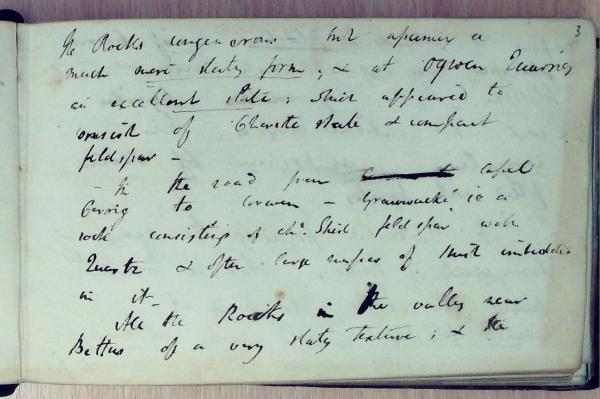 3
the Rocks congenerous — but assumes a
much more slaty form; & at Ogwen Quarries
an excellent slate; which appeared to
consist of Chlorite slate & compact
feldspar —
— In the road from Capel
Cerrig to — Grauwacke is a
rock consisting of feldspar with
Quartz & often large masses of imbedded
in it —
All the Rocks in the valley near
Bettws of a very slaty texture; & the